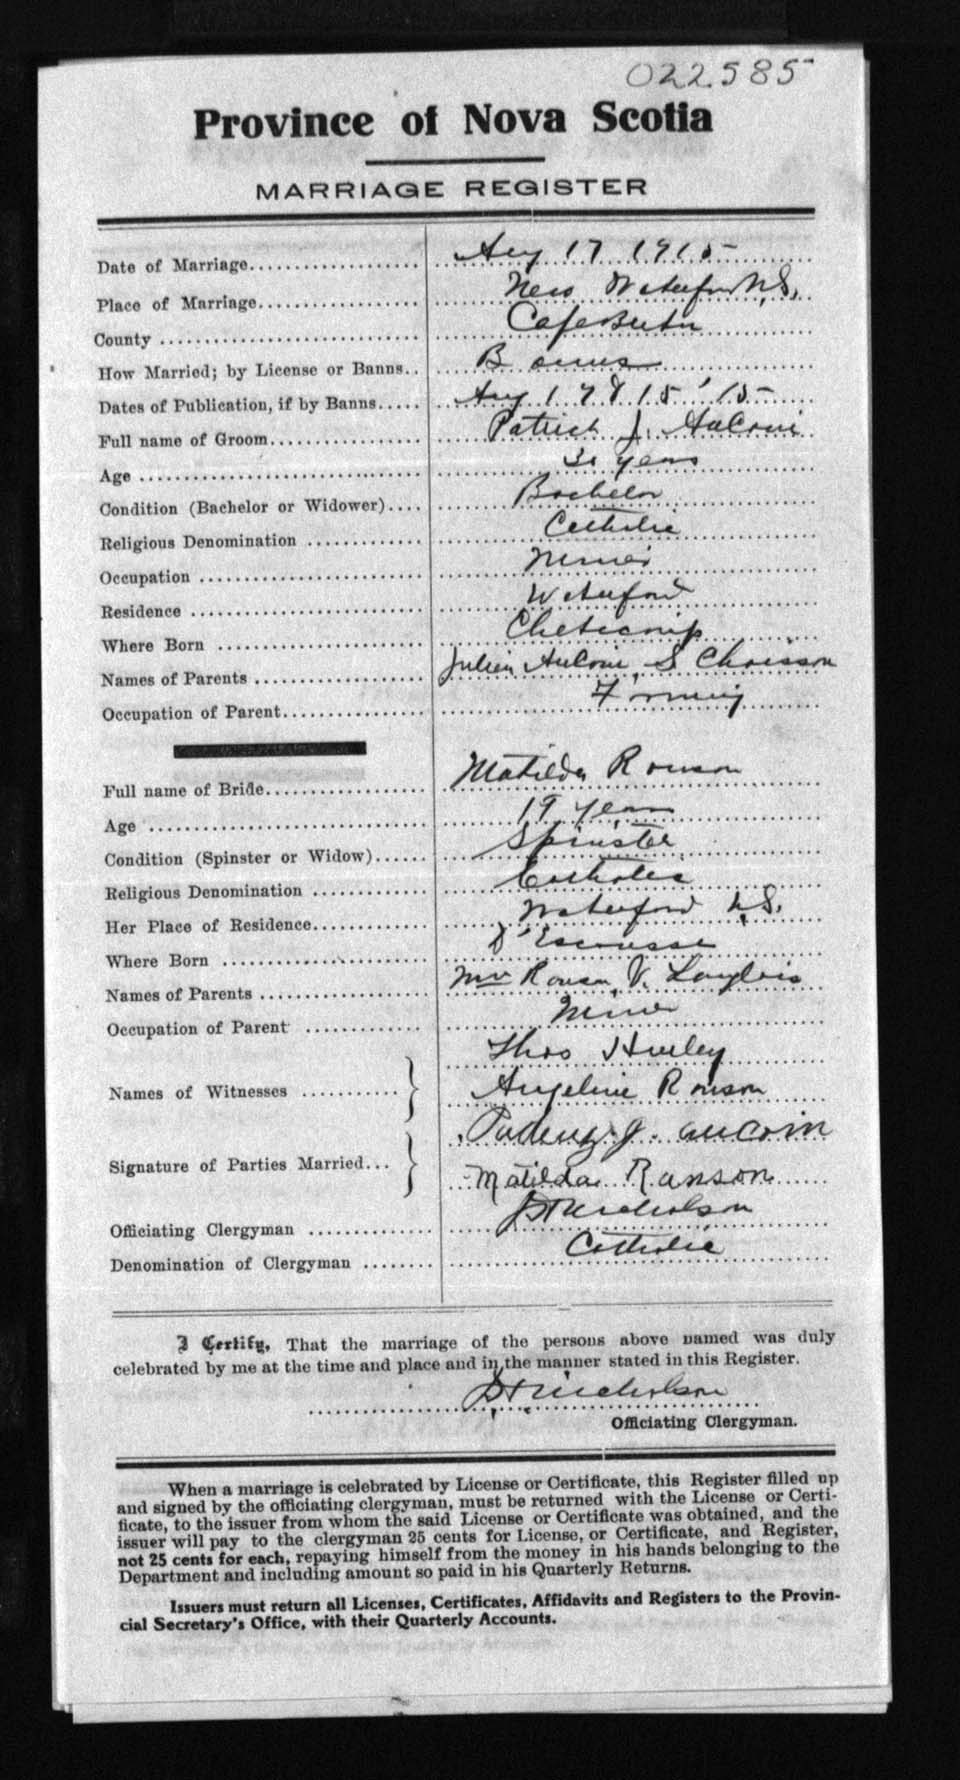 022585
Province of Nova Scotia
MARRIAGE REGISTER
Date of Marriage Aug 17 1915
Place of Marriage New Waterford N.S.
County Cape Breton
How Married; by License or Banns Banns
Dates of Publication, if by Banns Aug 15 '15
Full name of Groom Patrick J. AuCoin
Age years
Condition (Bachelor or Widower) Bachelor
Religious Denomination Catholic
Occupation Miner
Residence Waterford
Where Born Cheticamp
Names of Parents Julien AuCoin, S Chaisson
Occupation of Parent Farming
Full name of Bride Matilda Ronson
Age 19 years
Condition (Spinster or Widow) Spinster
Religious Denomination Catholic
Her Place of Residence Waterford N.S.
Where Born D'Escousse
Names of Parents Ronson, V. Langlois
Occupation of Parent Miner
Thos Hurley
Names of Witnesses
Angeline Ronson
J. aucoin
Signature of Parties Married
Matilda Ranson
Officiating Clergyman Nicholson
Denomination of Clergyman Catholic
I Certify, That the marriage of the persons above named was duly
celebrated by me at the time and place and in the manner stated in this Register.
Nicholson
Officiating Clergyman.
When a marriage is celebrated by License or Certificate, this Register filled up
and signed by the officiating clergyman, must be returned with the License or Certi-
ficate, to the issuer from whom the said License or Certificate was obtained, and the
issuer will pay to the clergyman 25 cents for License, or Certificate, and Register,
not 25 cents for each, repaying himself from the money in his hands belonging to the
Department and including amount so paid in his Quarterly Returns.
Issuers must return all Licenses, Certificates, Affidavits and Registers to the Provin-
cial Secretary's Office, with their Quarterly Accounts.